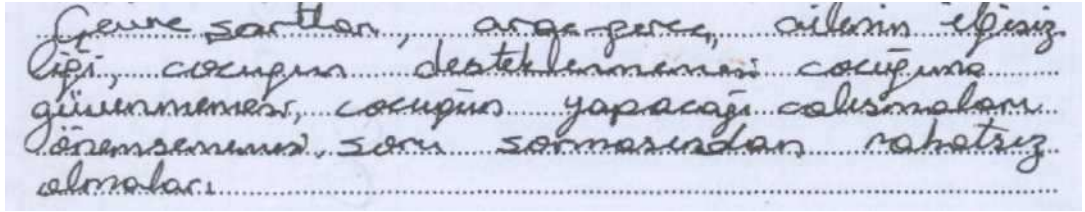 Çevre şartları, araç-gereç, ailenin ilgisiz
liği, cocuğun desteklenmemesi cocuğuna
güvenmemesi, cocuğun yapacağı calışmaları
önemsememesi, soru sormasından rahatsız
olmaları